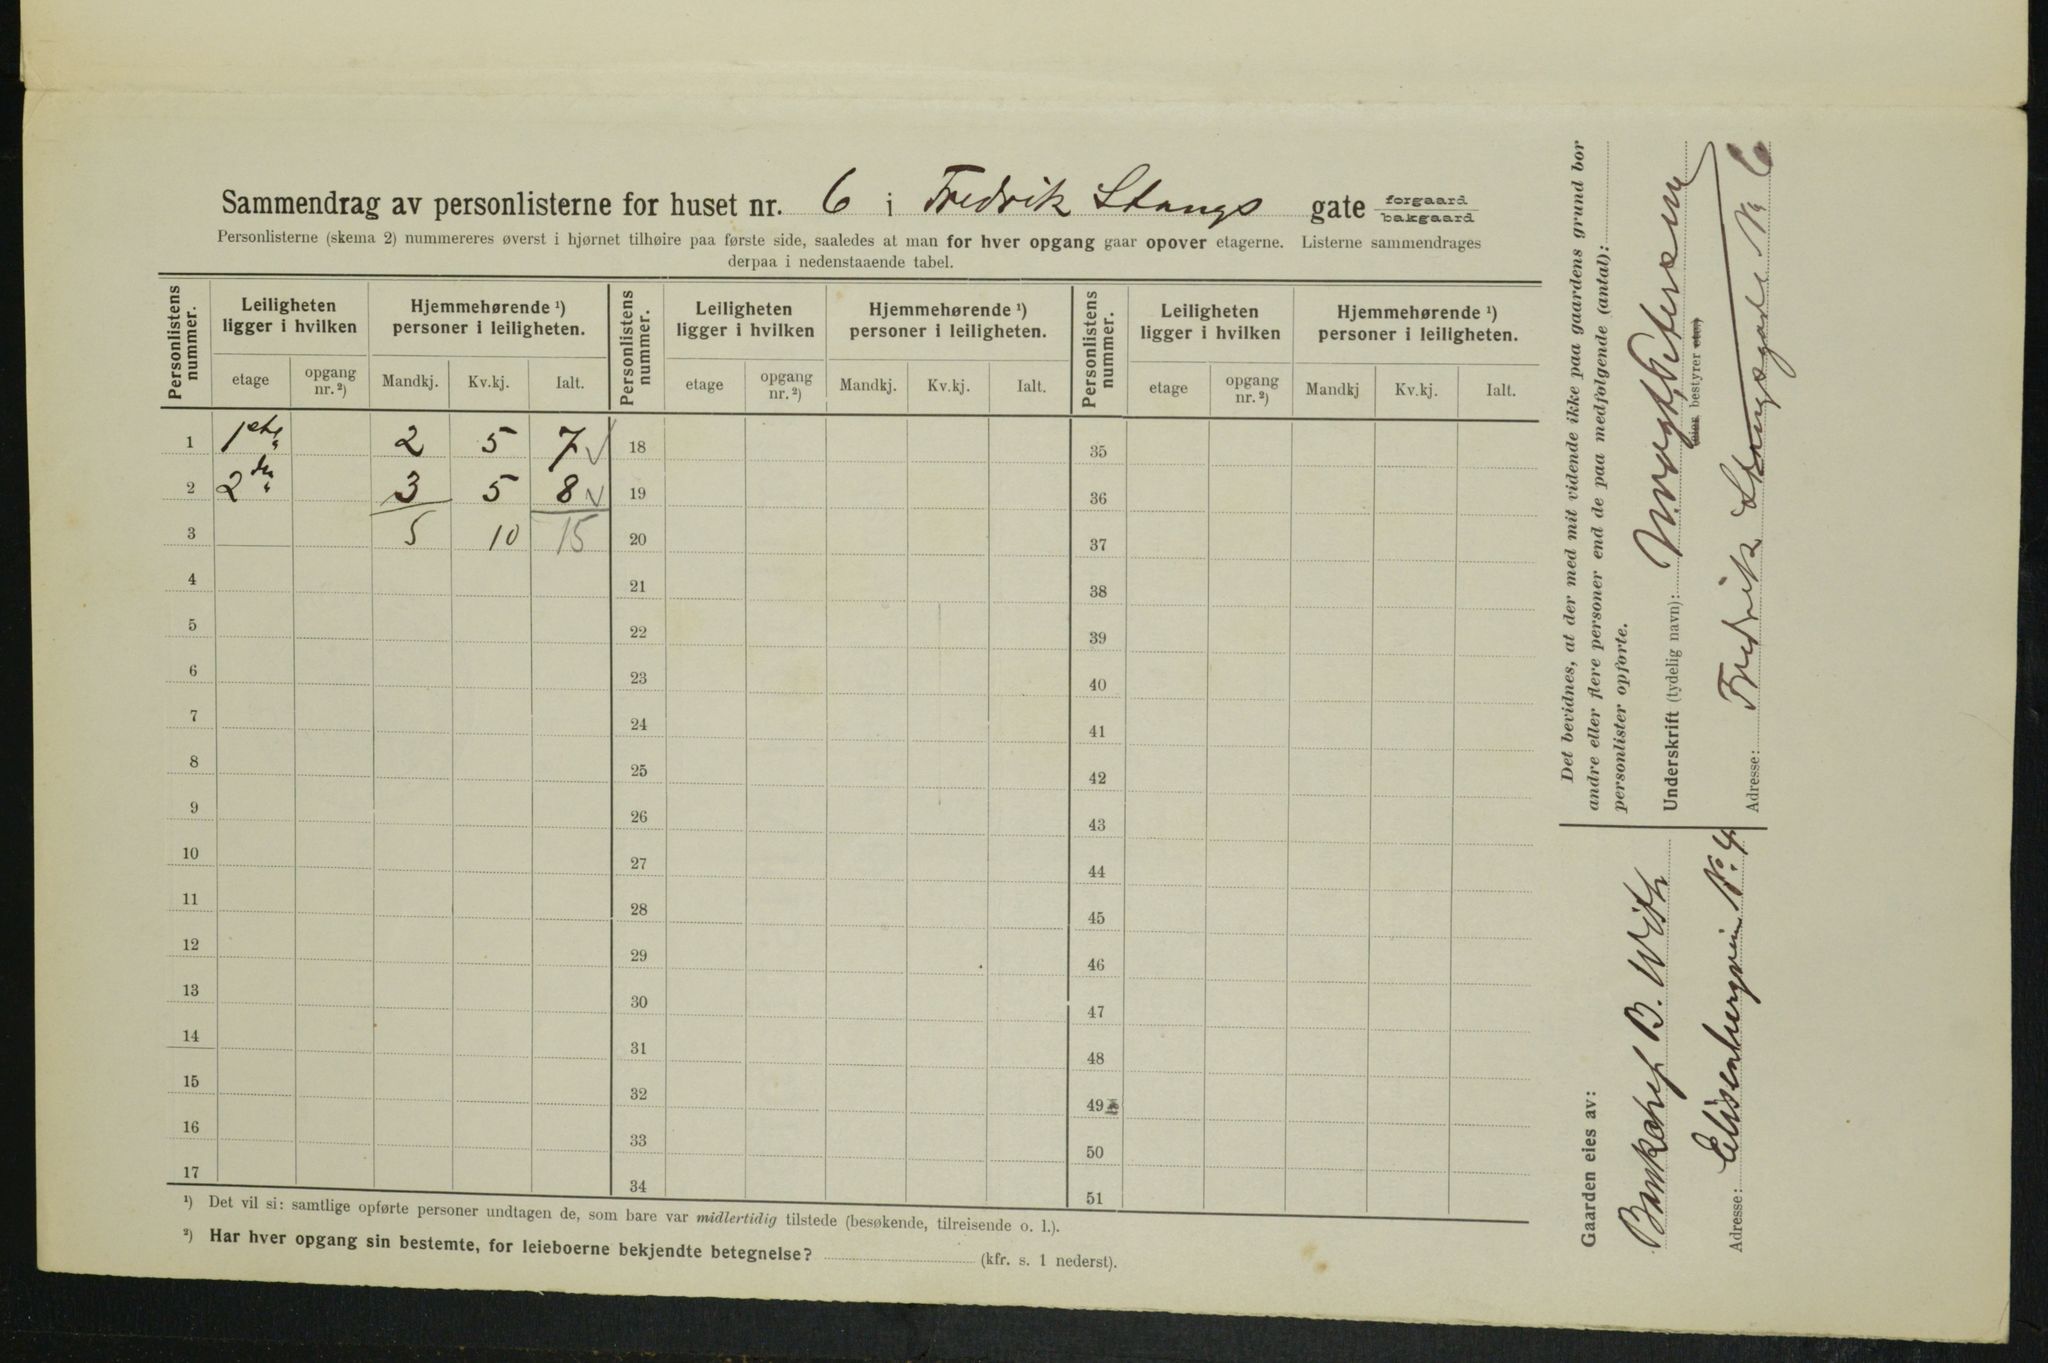 Sammendrag av personlisterne for huset nr. 6 i Fredrik Stangs gate forgaard bakgaard
Personlisterne (skema 2) nummereres øverst i hjørnet tilhøire paa første side, saaledes at man for hver opgang gaar opover etagerne. Listerne sammendrages
derpaa i nedenstaaende tabel.
Personlistens nummer. Leiligheten ligger i hvilken Hjemmehørende ¹) personer i leiligheten. Personlistens nummer. Leiligheten ligger i hvilken Hjemmehørende ¹) personer i leiligheten. Personlistens nummer. Leiligheten ligger i hvilken Hjemmehørende ¹) personer i leiligheten.
etage opgang nr. ²) Mandkj. Kv.kj. Ialt. etage opgang nr. ²) Mandkj. Kv.kj. Ialt. etage opgang nr. ²) Mandkj Kv.kj. Ialt.
1 1ste 2 5 7 ✓ 18 35
2 2den 3 5 8 ✓ 19 36
3 5 10 15 20 37
4 21 38
5 22 39
6 23 40
7 24 41
8 25 42
9 26 43
10 27 44
11 28 45
12 29 46
13 30 47
14 31 48
15 32 49
16 33 50
17 34 51
¹) Det vil si: samtlige opførte personer undtagen de, som bare var midlertidig tilstede (besøkende, tilreisende o. l.).
²) Har hver opgang sin bestemte, for leieboerne bekjendte betegnelse? (kfr. s. 1 nederst).
Det bevidnes, at der med mit vidende ikke paa gaardens grund bor
andre eller flere personer end de paa medfølgende (antal):
personlister opførte.
Underskrift (tydelig navn): Petersen
eier bestyrer etc.)
Adresse: Fredrik Stangsgade Nr 6
Gaarden eies av:
B. With
Adresse: Elisenbergveien No 4